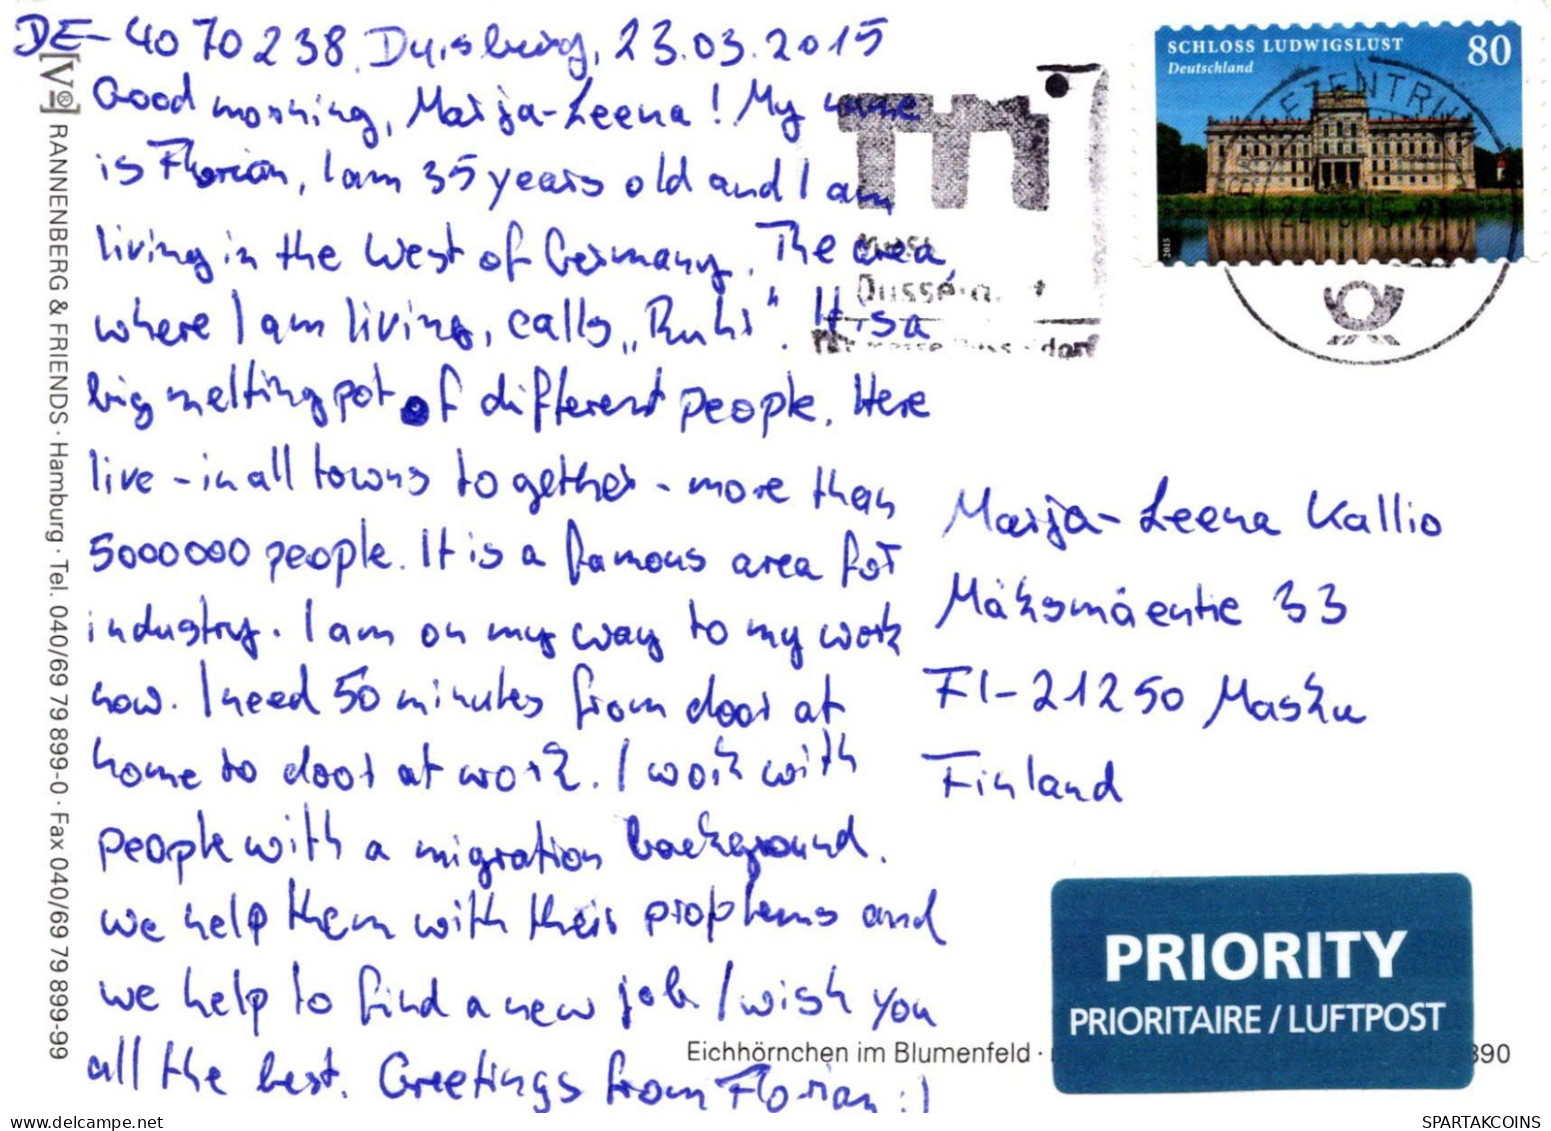 DE-4070238, Duisburg, 23.03.2015
Good morning, Marja-Leena! My name
is Florian, I am 35 years old and I am
living in the West of Germany. The area
where I am living, calls „Ruhr". It is a
big melting pot of different people. Here
live - in all towns together - more than
5000000 people. It is a famous area for
industry. I am on my way to my work
now. I need 50 minutes from door at
home to door at work. I work with
people with a migration background.
We help them with their proplems and
we help to find a new job. I wish you
all the best. Greetings from Florian :)
SCHLOSS LUDWIGSLUST 80
Deutschland
2015
BRIEFZENTRUM
Marja-Leena Kallio
Mäksmäentie 33
FI-21250 Masku
Finland
PRIORITY
PRIORITAIRE / LUFTPOST
Eichhörnchen im Blumenfeld ·
890
RANNENBERG & FRIENDS · Hamburg · Tel. 040/69 79 899-0 · Fax 040/69 79 899-99
SPARTAKCOINS
www.delcampe.net